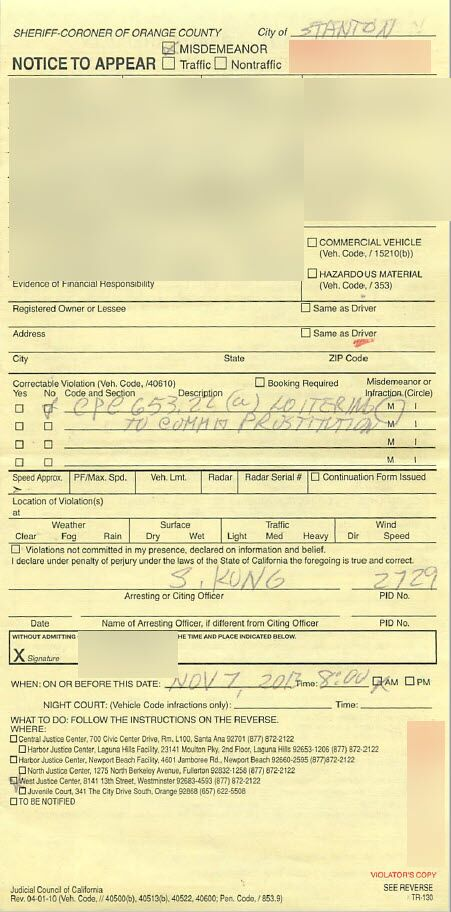 SHERIFF-CORONER OF ORANGE COUNTY City of STANTON
MISDEMEANOR
NOTICE TO APPEAR Traffic Nontraffic
COMMERCIAL VEHICLE
(Veh. Code, / 15210(b))
HAZARDOUS MATERIAL
(Veh. Code, / 353)
Evidence of Financial Responsibility
Registered Owner or Lessee Same as Driver
Address Same as Driver
City State ZIP Code
Correctable Violation (Veh. Code, /40610) Booking Required Misdemeanor or
Yes No Code and Section Description Infraction (Circle)
CPC 653.22 (a) LOITERING M I
TO COMMIT PROSTITUTION M I
M I
M I
Speed Approx. PF/Max. Spd. Veh. Lmt. Radar Radar Serial # Continuation Form Issued
Location of Violation(s)
at
Weather Surface Traffic Wind
Clear Fog Rain Dry Wet Light Med Heavy Dir Speed
Violations not committed in my presence, declared on information and belief.
I declare under penalty of perjury under the laws of the State of California the foregoing is true and correct.
S. KUNG 2729
Arresting or Citing Officer PID No.
Date Name of Arresting Officer, if different from Citing Officer PID No.
WITHOUT ADMITTING HE TIME AND PLACE INDICATED BELOW.
X Signature
WHEN: ON OR BEFORE THIS DATE: NOV 7, Time: 8:00 AM PM
NIGHT COURT: (Vehicle Code infractions only): Time:
WHAT TO DO: FOLLOW THE INSTRUCTIONS ON THE REVERSE.
WHERE:
Central Justice Center, 700 Civic Center Drive, Rm. L100, Santa Ana 92701 (877) 872-2122
Harbor Justice Center, Laguna Hills Facility, 23141 Moulton Pky, 2nd Floor, Laguna Hills 92653-1206 (877) 872-2122
Harbor Justice Center, Newport Beach Facility, 4601 Jamboree Rd., Newport Beach 92660-2595 (877)872-2122
North Justice Center, 1275 North Berkeley Avenue, Fullerton 92832-1258 (877) 872-2122
West Justice Center, 8141 13th Street, Westminster 92683-4593 (877) 872-2122
Juvenile Court, 341 The City Drive South, Orange 92868 (657) 622-5508
TO BE NOTIFIED
VIOLATOR'S COPY
Judicial Council of California SEE REVERSE
Rev. 04-01-10 (Veh. Code, // 40500(b), 40513(b), 40522, 40600; Pen. Code, / 853.9) TR-130